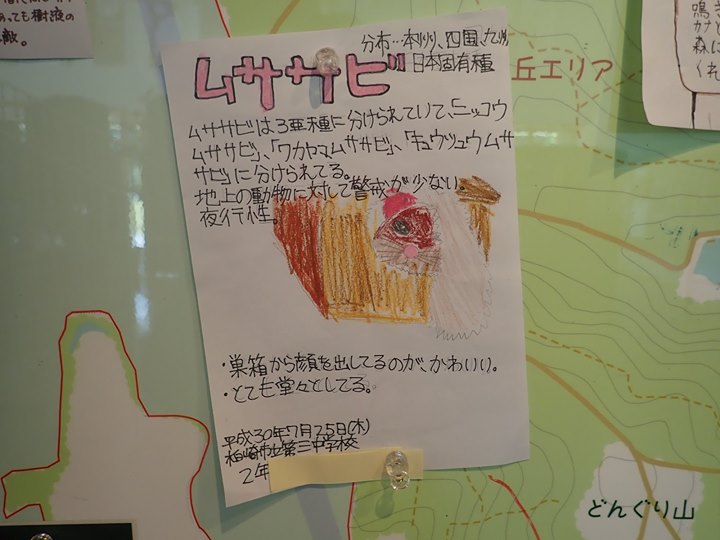 っても樹液の
敵。
分布…本州、四国、九州
日本固有種
ムササビ
ムササビは3亜種に分けられていて、ニッコウ
ムササビ」、「ワカヤマムササビ」、「キュウシュウムサ
サビ」に分けられてる。
地上の動物に対して警戒が少ない。
夜行性。
・巣箱から顔を出してるのが、かわいい。
・とても堂々としてる。
平成30年7月25日(木)
柏崎市立第三中学校
2年
丘エリア
どんぐり山
鳴き
森に
くれ